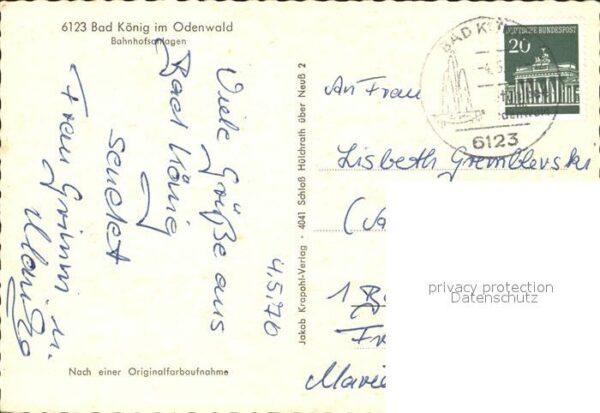 6123 Bad König im Odenwald
Bahnhofsanlagen
Viele Grüße aus
Bad König
sendet
Frau Grimm u.
4.5.70
Nach einer Originalfarbaufnahme
Jakob Krapohl-Verlag · 4041 Schloß Hülchrath über Neuß 2
BAD KÖ
6123
DEUTSCHE BUNDESPOST
20
An Frau
Lisbeth Gremblevski
1
privacy protection
Datenschutz